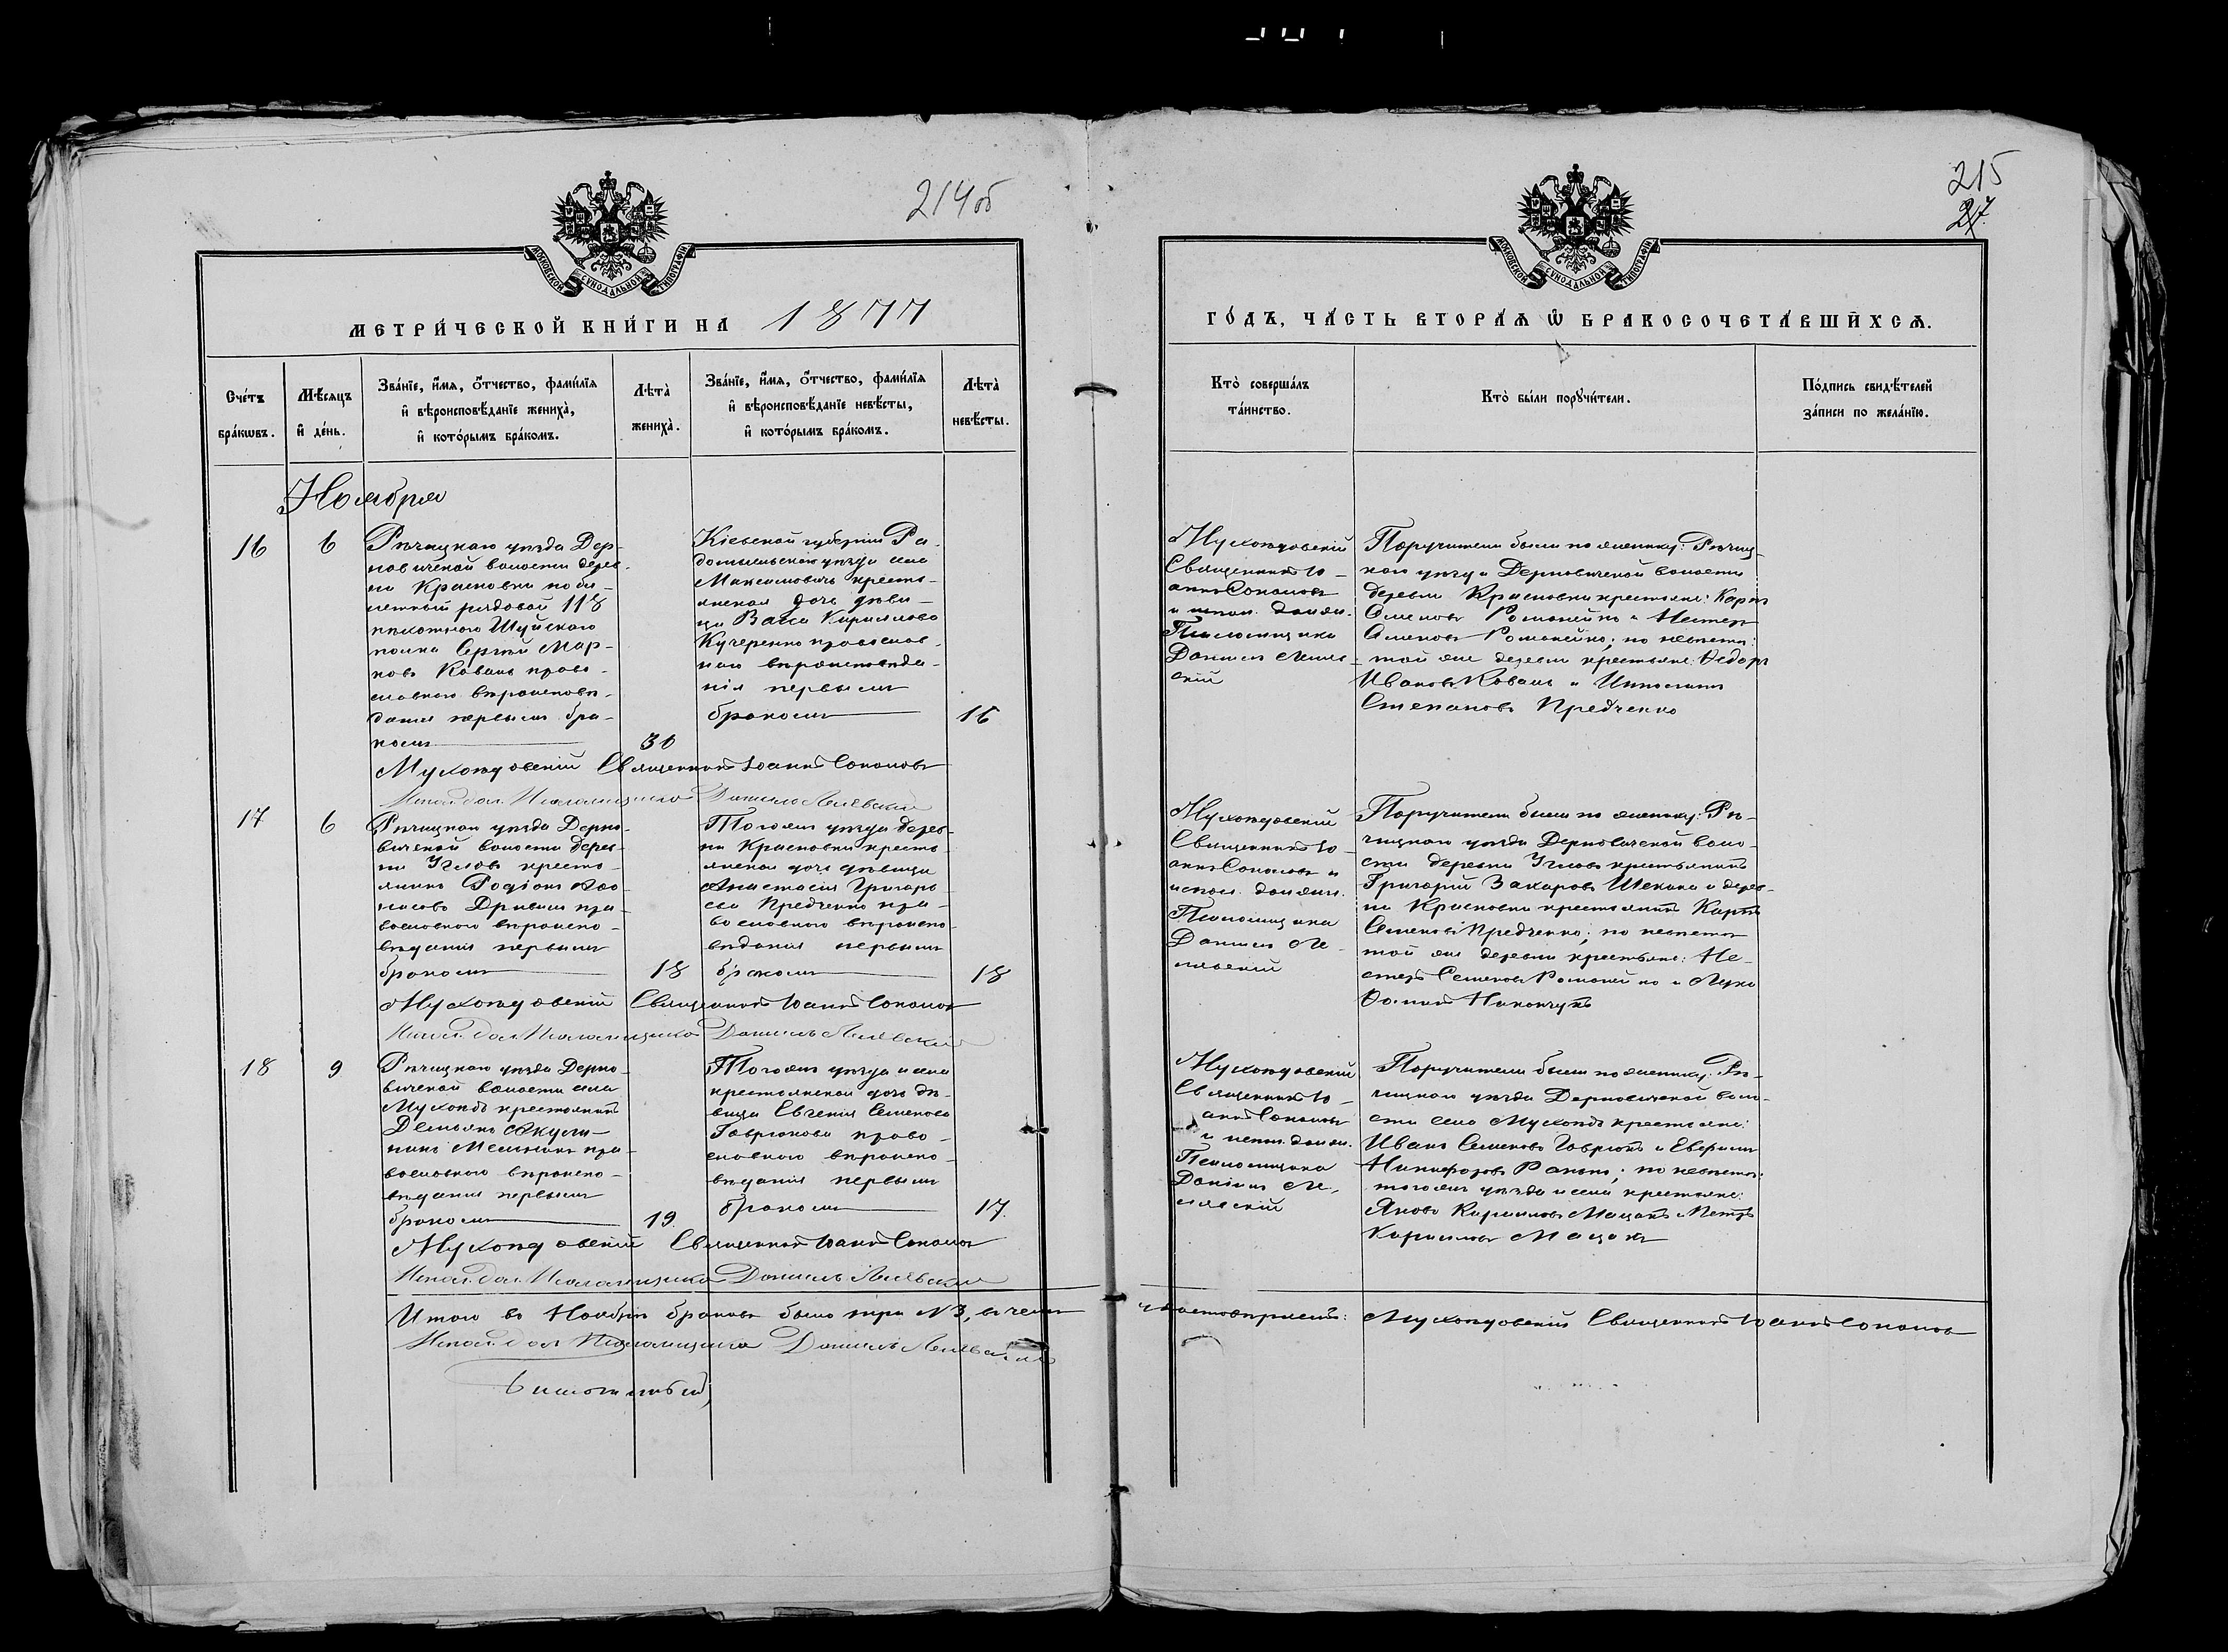 214об
МОСКОВСКОЙ СУНОДАЛЬНОЙ ТИПОГРАФІИ
МЕТРИ́ЧЕСКОЙ КНИ́ГИ НА 1877
Сче́тъ бра́кωвъ.
Мѣ́сяцъ и҆ де́нь.
Зва́нїе, и҆́мѧ, ѻ҆́тчество, фами́лїѧ
и҆ вѣроисповѣ́данїе жениха̀,
и҆ кото́рымъ бра́комъ.
Лѣта̀ жениха̀.
Зва́нїе, и҆́мѧ, ѻ҆́тчество, фами́лїѧ
и҆ вѣроисповѣ́данїе невѣ́сты,
и҆ кото́рымъ бра́комъ.
Лѣта̀ невѣ́сты.
Ноября
16
6
Рѣчицкаго уѣзда Дер-
новичской волости дерев-
ни Красновки по би-
летный рядовой 118
пѣхотнаго Шуйскаго
полка Сергѣй Мар-
ковъ Коваль право-
славнаго вѣроисповѣ-
данія первымъ бра-
комъ
30
Кіевской губерніи Ра-
домысльскаго уѣзда села
Максимовичъ кресть-
янская дочь дѣви-
ца Васса Кириллова
Кучеренко православ-
наго вѣроисповѣда-
нія первымъ
бракомъ
16
Мухоѣдовскій Священникъ Іоаннъ Соколовъ
Испол. дол. Псаломщика Даніилъ
17
6
Рѣчицкаго уѣзда Дерно-
вичской волости дерев-
ни Угловъ кресть-
янинъ Родіонъ
Дривень пра-
вославнаго вѣроиспо-
вѣданія первымъ
бракомъ
18
Того же уѣзда дерев-
ни Красновки кресть-
янская дочь дѣвица
Анастасія Григорь-
ева Предченко пра-
вославнаго вѣроиспо-
вѣданія первымъ
бракомъ
18
Мухоѣдовскій Священникъ Іоаннъ Соколовъ
Испол. дол. Псаломщика Даніилъ
18
9
Рѣчицкаго уѣзда Дерно-
вичской волости села
Мухоѣдъ крестьянинъ
Демьянъ Акули-
новъ Мельникъ пра-
вославнаго вѣроиспо-
вѣданія первымъ
бракомъ
19.
Того же уѣзда и села
крестьянская дочь дѣ-
вица Евгенія Семенова
Гаврюкова право-
славнаго вѣроиспо-
вѣданія первымъ
бракомъ
17.
Мухоѣдовскій Священникъ Іоаннъ Соколовъ
Испол. дол. Псаломщика Даніилъ
Итого въ Ноябрѣ браковъ было три № 3, въ чемъ
Испол. дол. Псаломщика Даніилъ
215
217.
МОСКОВСКОЙ СУНОДАЛЬНОЙ ТИПОГРАФІИ
ГО́ДЪ, ЧА́СТЬ ВТОРА́Ѧ Ѽ БРАКОСОЧЕТА́ВШИХСѦ.
Кто̀ соверша́лъ та́инство.
Кто̀ бы́ли порꙋчи́тели.
По́дпись свидѣ́телей за́писи по жела́нїю.
Мухоѣдовскій
Священникъ Іо-
аннъ Соколовъ
и испол. должн.
Псаломщика
Даніилъ
Поручители были по женихѣ: Рѣчиц-
каго уѣзда Дерновичской волости
деревни Красновки крестьяне: Карпъ
Семеновъ Романейко и Нестеръ
Семеновъ Романейко; по невѣстѣ:
той же деревни крестьяне: Ѳедоръ
Ивановъ Коваль и
Степановъ Предченко
Мухоѣдовскій
Священникъ Іо-
аннъ Соколовъ и
испол. должн.
Псаломщика
Даніилъ
Поручители были по женихѣ: Рѣ-
чицкаго уѣзда Дерновичской воло-
сти деревни Угловъ крестьянинъ
Григорій Захаровъ и дерев-
ни Красновки крестьянинъ Карпъ
Семеновъ Предченко; по невѣстѣ
той же деревни крестьяне: Не-
стеръ Семеновъ Романейко и Лука
Мухоѣдовскій
Священникъ Іо-
аннъ Соколовъ
и испол. должн.
Псаломщика
Даніилъ
Поручители были по женихѣ: Рѣ-
чицкаго уѣзда Дерновичской воло-
сти села Мухоѣдъ крестьяне:
Иванъ Семеновъ Гаврюкъ и Евфимъ
Никифоровъ; по невѣстѣ:
того же уѣзда и села крестьяне:
Яковъ Кирилловъ Мацакъ и Петръ
Кирилловъ Мацакъ
Мухоѣдовскій Священникъ Іоаннъ Соколовъ